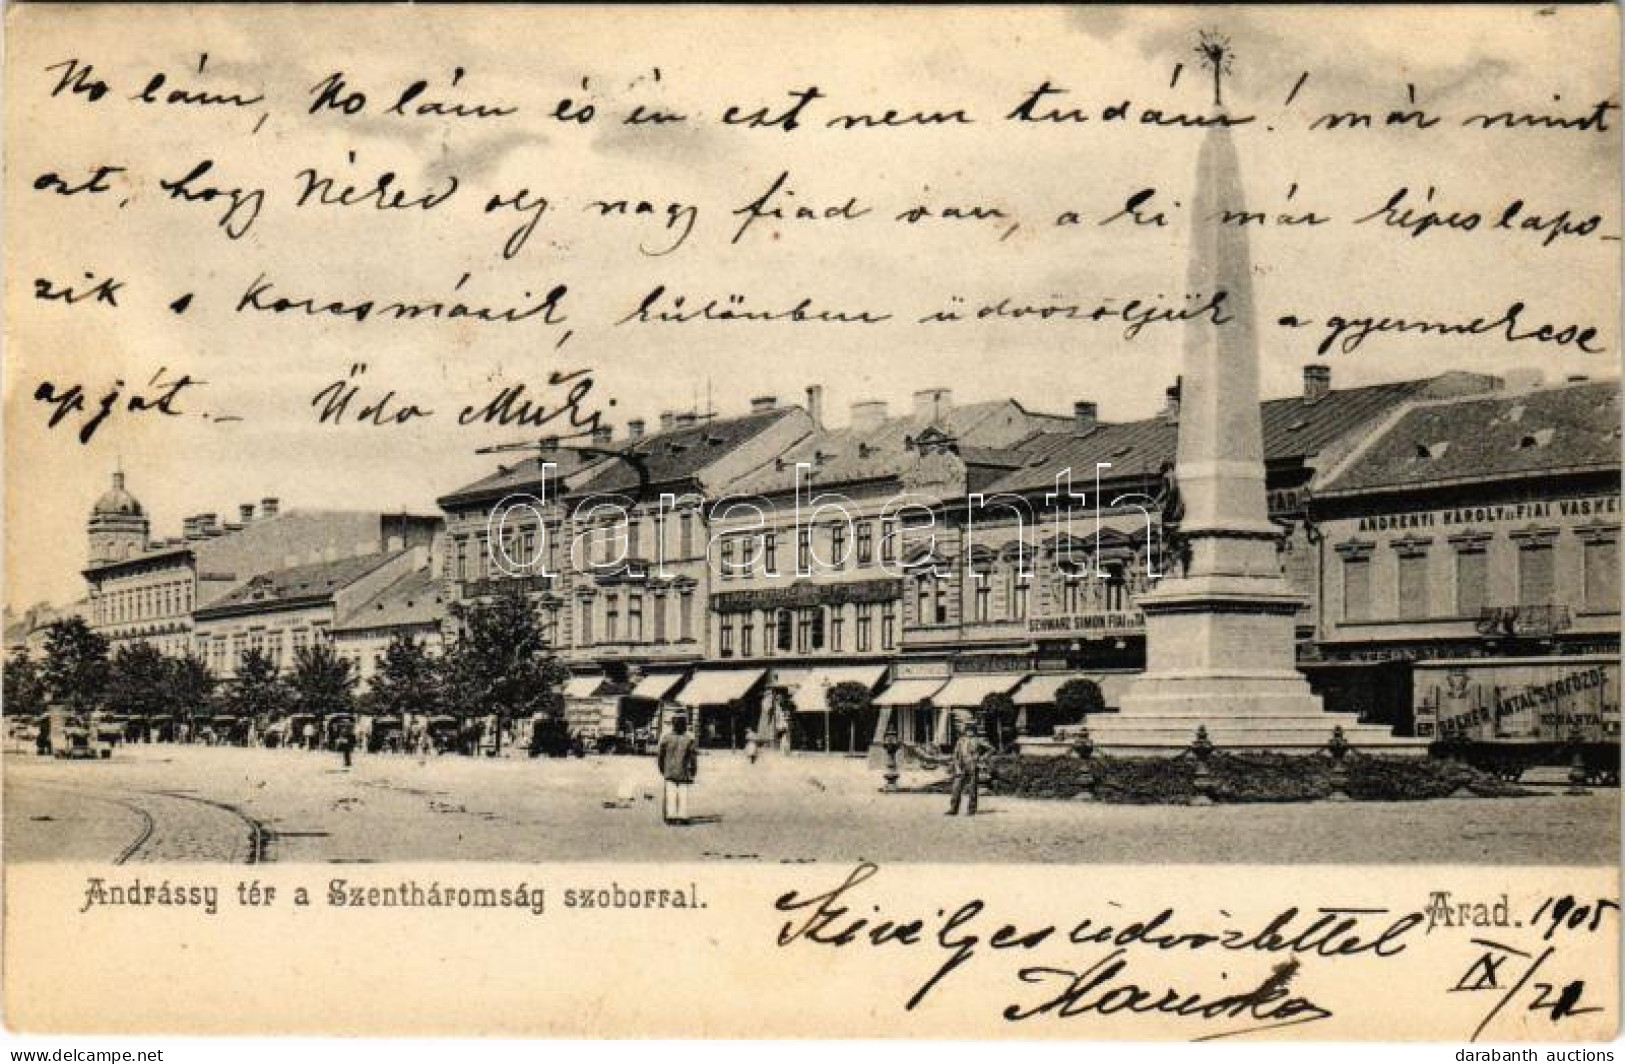 No lám, No lám és én ezt nem tudám! már mint
azt, hogy Néked oly nagy fiad van, a ki már képeslapo-
zik s Korcsmázik, különben üdvözöljük a gyermekcse
apját. - Üdv Muki
darabanth
ANDRÉNYI KÁROLY ÉS FIAI VASKE
SCHWARZ SIMON FIAI ÉS TÁ
DREHER ANTAL SERFŐZDE
KŐBÁNYA
Andrássy tér a Szentháromság szoborral.
Arad. 1905
IX/21
Szivélyes üdvözlettel
Mariska
www.darabanth.com
darabanth auctions